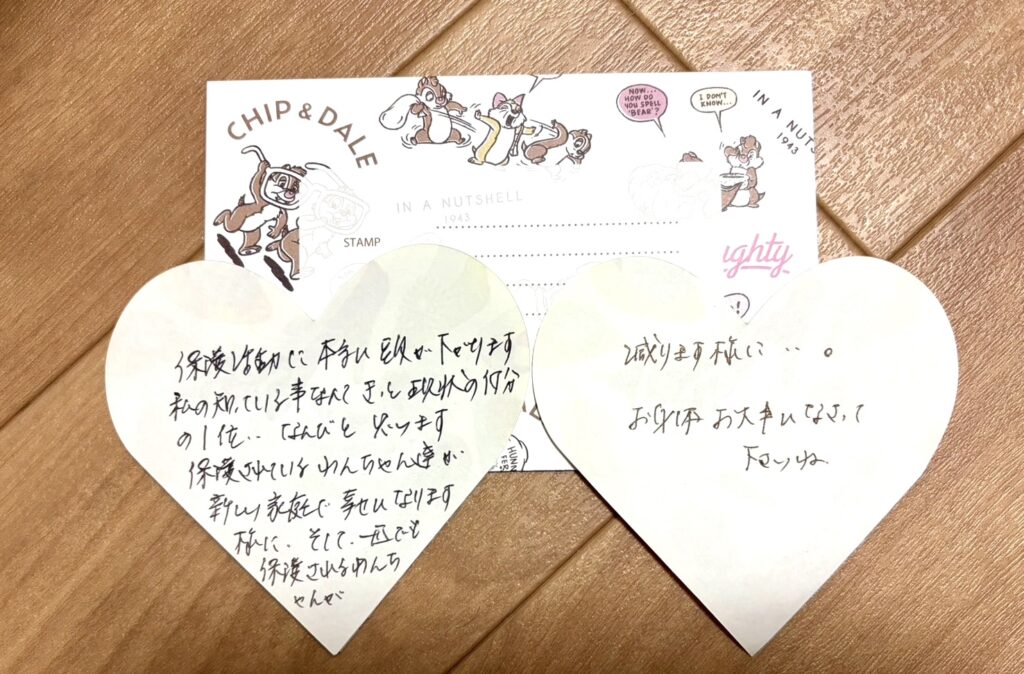 CHIP & DALE
NOW...
HOW DO
YOU SPELL
'BEAR'?
I DON'T
KNOW...
IN A NUTS
1943
IN A NUTSHELL
1943
STAMP
ughty
保護活動に本当に頭が下がります
私の知っている事なんてきっと現状の何分
の1位‥なんだと思います
保護されているわんちゃん達が
新しい家庭で幸せになります
様に、そして、一匹でも
保護されるわんち
ゃんが
減ります様に‥。
お身体お大事になさって
下さいね
HUNN